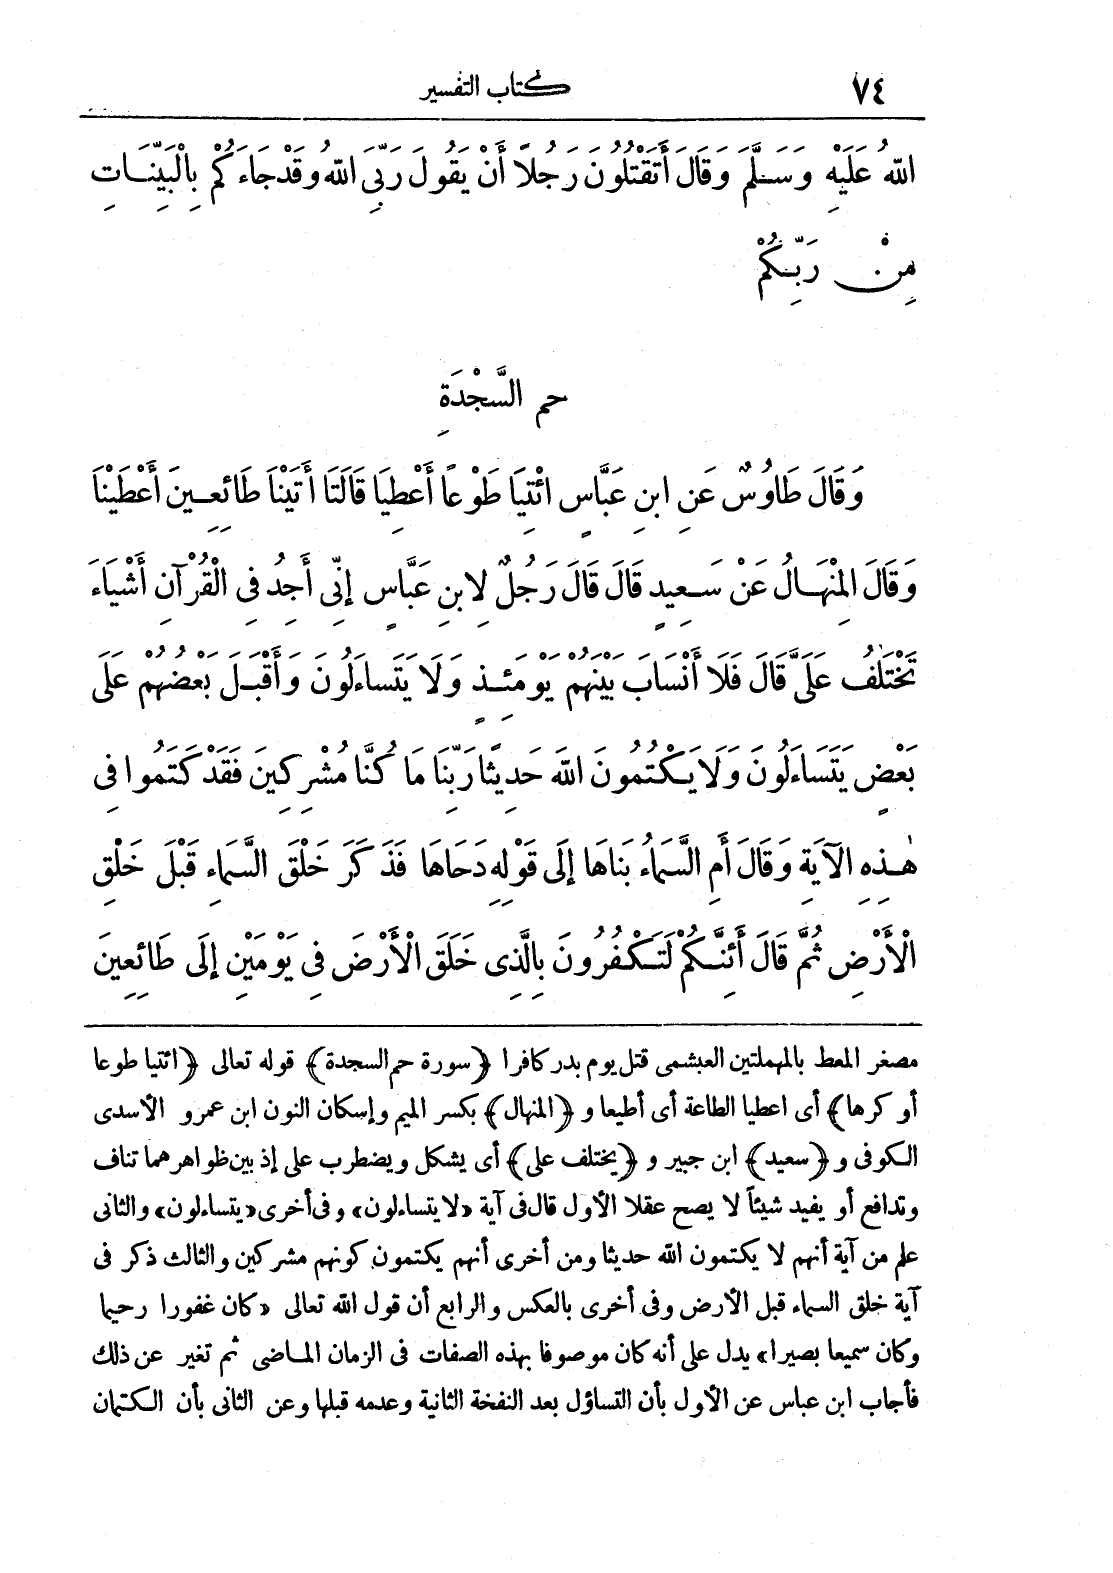 ٧٤
كتاب التفسير
اللهُ عَلَيْهِ وَسَلَّمَ وَقَالَ أَتَقْتُلُونَ رَجُلاً أَنْ يَقُولَ رَبِّىَ اللهُ وَقَدْ جَاءَكُمْ بِالْبَيِّنَاتِ
مِنْ رَبِّكُمْ
حم السَّجْدَةِ
وَقَالَ طَاوُسٌ عَنِ ابنِ عَبَّاسٍ ائْتِيَا طَوْعاً أَعْطِيَا قَالَتَا أَتَيْنَا طَائِعِينَ أَعْطَيْنَا
وَقَالَ المِنْهَالُ عَنْ سَعِيدٍ قَالَ قَالَ رَجُلٌ لِابنِ عَبَّاسٍ إِنِّى أَجِدُ فِى الْقُرْآنِ أَشْيَاءَ
تَخْتَلِفُ عَلَىَّ قَالَ فَلَا أَنْسَابَ بَيْنَهُمْ يَوْمَئِذٍ وَلَا يَتَسَاءَلُونَ وَأَقْبَلَ بَعْضُهُمْ عَلَى
بَعْضٍ يَتَسَاءَلُونَ وَلَا يَكْتُمُونَ اللهَ حَدِيثًا رَبِّنَا مَا كُنَّا مُشْرِكِينَ فَقَدْ كَتَمُوا فِى
هٰذِهِ الآيَةِ وَقَالَ أَمِ السَّمَاءُ بَنَاهَا إِلَى قَوْلِهِ دَحَاهَا فَذَكَرَ خَلْقَ السَّمَاءِ قَبْلَ خَلْقِ
الْأَرْضِ ثُمَّ قَالَ أَئِنَّكُمْ لَتَكْفُرُونَ بِالَّذِى خَلَقَ الْأَرْضَ فِى يَوْمَيْنِ إِلَى طَائِعِينَ
مصغر المعط بالمهملتين العبشمى قتل يوم بدر كافرا ﴿سورة حم السجدة﴾ قوله تعالى ﴿ائتيا طوعا
أو كرها﴾ أى اعطيا الطاعة أى أطيعا و ﴿المنهال﴾ بكسر الميم وإسكان النون ابن عمرو الأسدى
الكوفى و ﴿سعيد﴾ ابن جبير و ﴿يختلف على﴾ أى يشكل ويضطرب على إذ بين ظواهرهما تناف
وتدافع أو يفيد شيئاً لا يصح عقلا الأول قال فى آية «لا يتساءلون» وفى أخرى «يتساءلون» والثانى
علم من آية أنهم لا يكتمون الله حديثا ومن أخرى أنهم يكتمون كونهم مشركين والثالث ذكر فى
آية خلق السماء قبل الأرض وفى أخرى بالعكس والرابع أن قول الله تعالى «كان غفورا رحيما
وكان سميعا بصيرا» يدل على أنه كان موصوفا بهذه الصفات فى الزمان الماضى ثم تغير عن ذلك
فأجاب ابن عباس عن الأول بأن التساؤل بعد النفخة الثانية وعدمه قبلها وعن الثانى بأن الكتمان